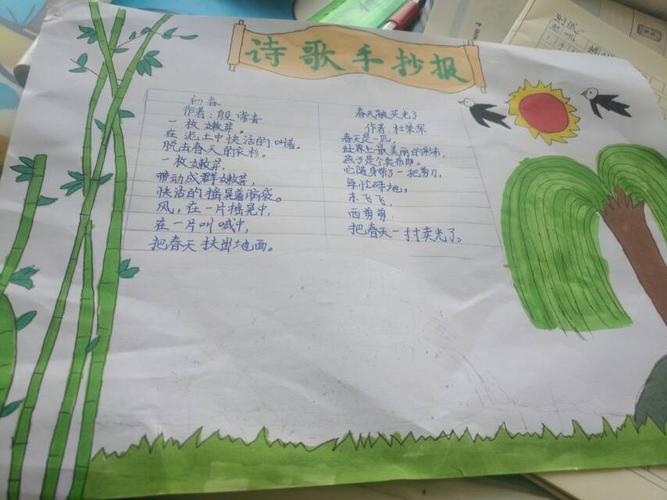 诗歌手抄报
初春
作者:殷常青
一枚嫩芽。
在泥土中快活的叫嚷。
脱去春天的衣衫。
一枚嫩芽,
带动成群嫩芽,
快活的摇晃着脑袋。
风,在一片摇晃中,
在一片叫喊中,
把春天扶出地面。
春天被卖光了
作者,杜荣琛
春天是一匹,
世界上最美丽的彩布,
燕子是个卖布郎。
它随身带了一把剪刀,
每忙碌地,
东飞飞,
西剪剪,
把春天一寸寸卖光了。